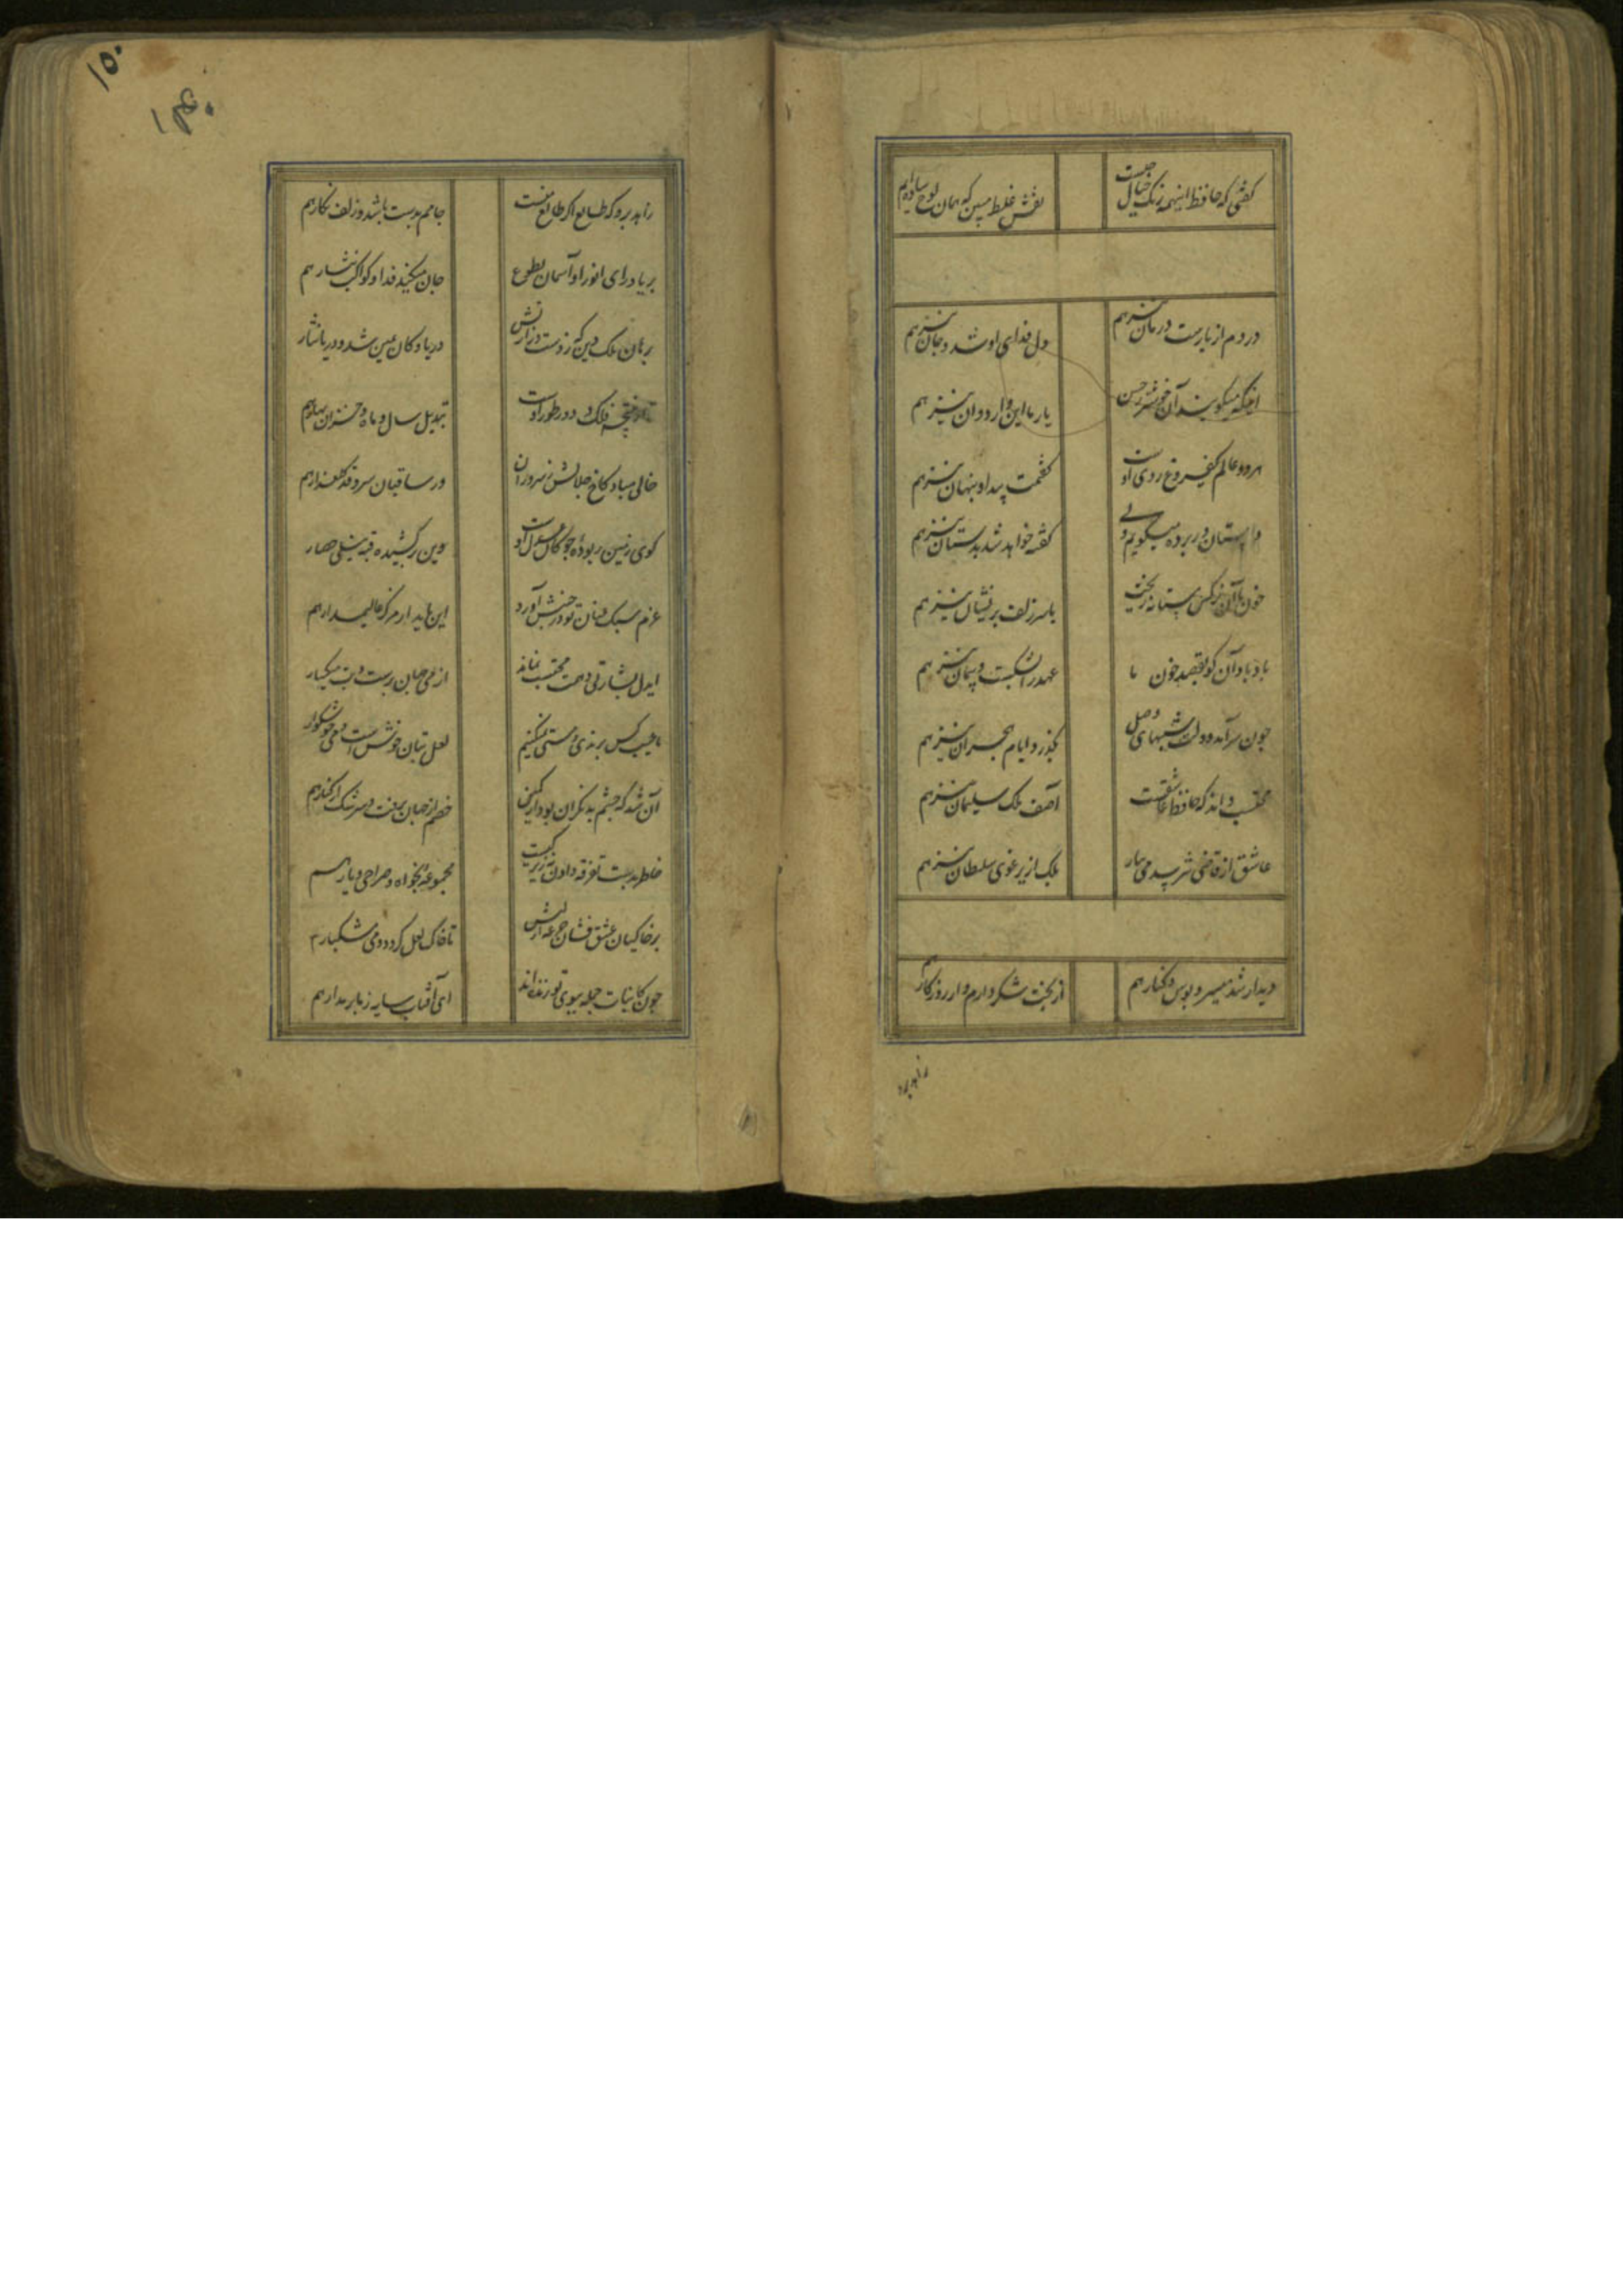 گفتی که حافظ اینهمه رنگ خیال چیست
نقش غلط مبین که همان لوح ساده‌ایم
دردم از یارست درمان نیز هم
دل فدای او شد و جان نیز هم
اینکه میگویند آن خوشتر ز حسن
یار ما این دارد و آن نیز هم
هر دو عالم یک فروغ روی اوست
گفتمت پیدا و پنهان نیز هم
داستان در پرده میگویم ولی
گفته خواهد شد بدستان نیز هم
خون ما آن نرگس مستانه ریخت
یا سر زلف پریشان نیز هم
یاد باد آن کو بقصد خون ما
عهد را بشکست و پیمان نیز هم
چون سرآمد دولت شبهای وصل
بگذرد ایام هجران نیز هم
محتسب داند که حافظ عاشقست
آصف ملک سلیمان نیز هم
عاشق از قاضی نترسد می بیار
بلک از یرغوی سلطان نیز هم
دیدار شد میسر و بوس و کنار هم
از بخت شکر دارم و از روزگار هم
زاهد برو
۱۵۰
زاهد برو که طالع اگر طالع منست
جامم بدست باشد و زلف نگار هم
بر یاد رای انور او آسمان
جان میکند فدا و کواکب نثار هم
برهان ملک و دین که ز دست وزارتش
دریا و کان یمین شد و دریا
فلک و دور طور اوست
تبدیل سال و ماه و خزان و بهار هم
خالی مباد کاخ جلالش ز سروران
وز ساقیان سرو قد گلعذار هم
گوی زمین ربوده چوگان عدل اوست
وین برکشیده قبه نیلی حصار
عزم سبک عنان تو در جنبش آورد
این پایدار مرکز عالیمدار هم
ایدل بشارتی دهمت محتسب نماند
از می جهان پرست و بت میگسار
ما عیب کس برندی و مستی نمیکنیم
لعل بتان خوش است و می خوشگوار
آن شد که چشم بد نگران بود از کمین
خصم از میان برفت و سرشک از کنار هم
خاطر بدست تفرقه دادن نه زیرکیست
مجموعه بخواه و صراحی و یار هم
بر خاکیان عشق فشان جرعه لبش
تا خاک لعل گردد و مشکبار
چون کاینات جمله ببوی تو زنده‌اند
ای آفتاب سایه ز ما بر مدار هم